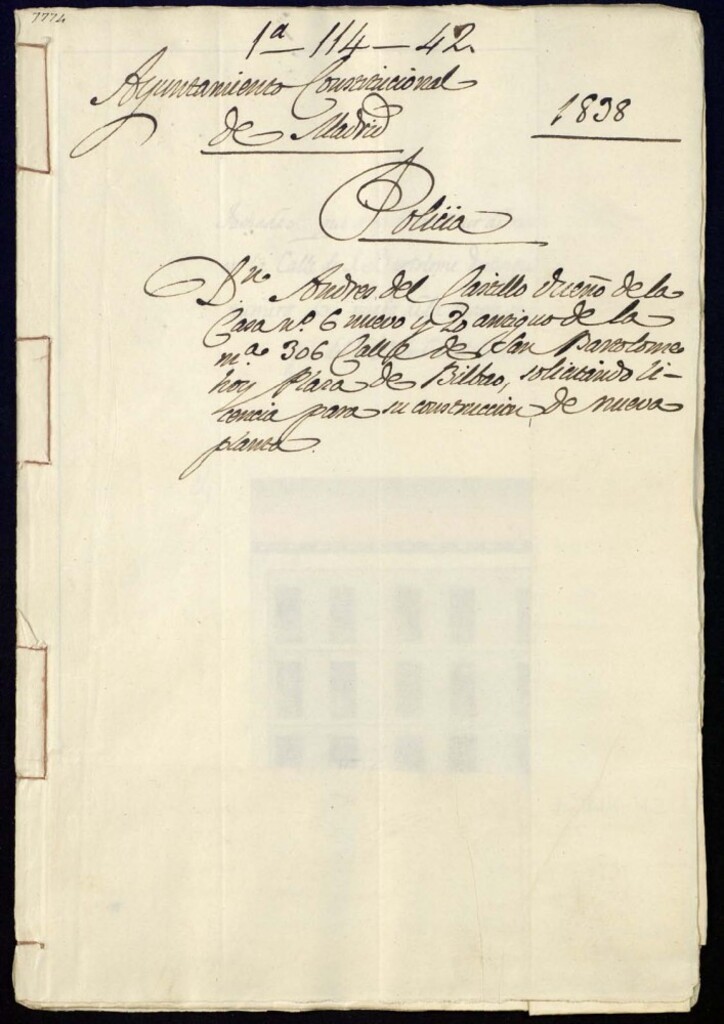 7774
1ª - 114 - 42
Ayuntamiento Constitucional
de Madrid
1838
Policia
Dn. Andres del Castillo dueño de la
Casa nº 6 nuevo y 20 antiguo de la
mª 306 Calle de San Bartolome
hoy Plaza de Bilbao, solicitando li-
cencia para su construccion de nueva
planta.